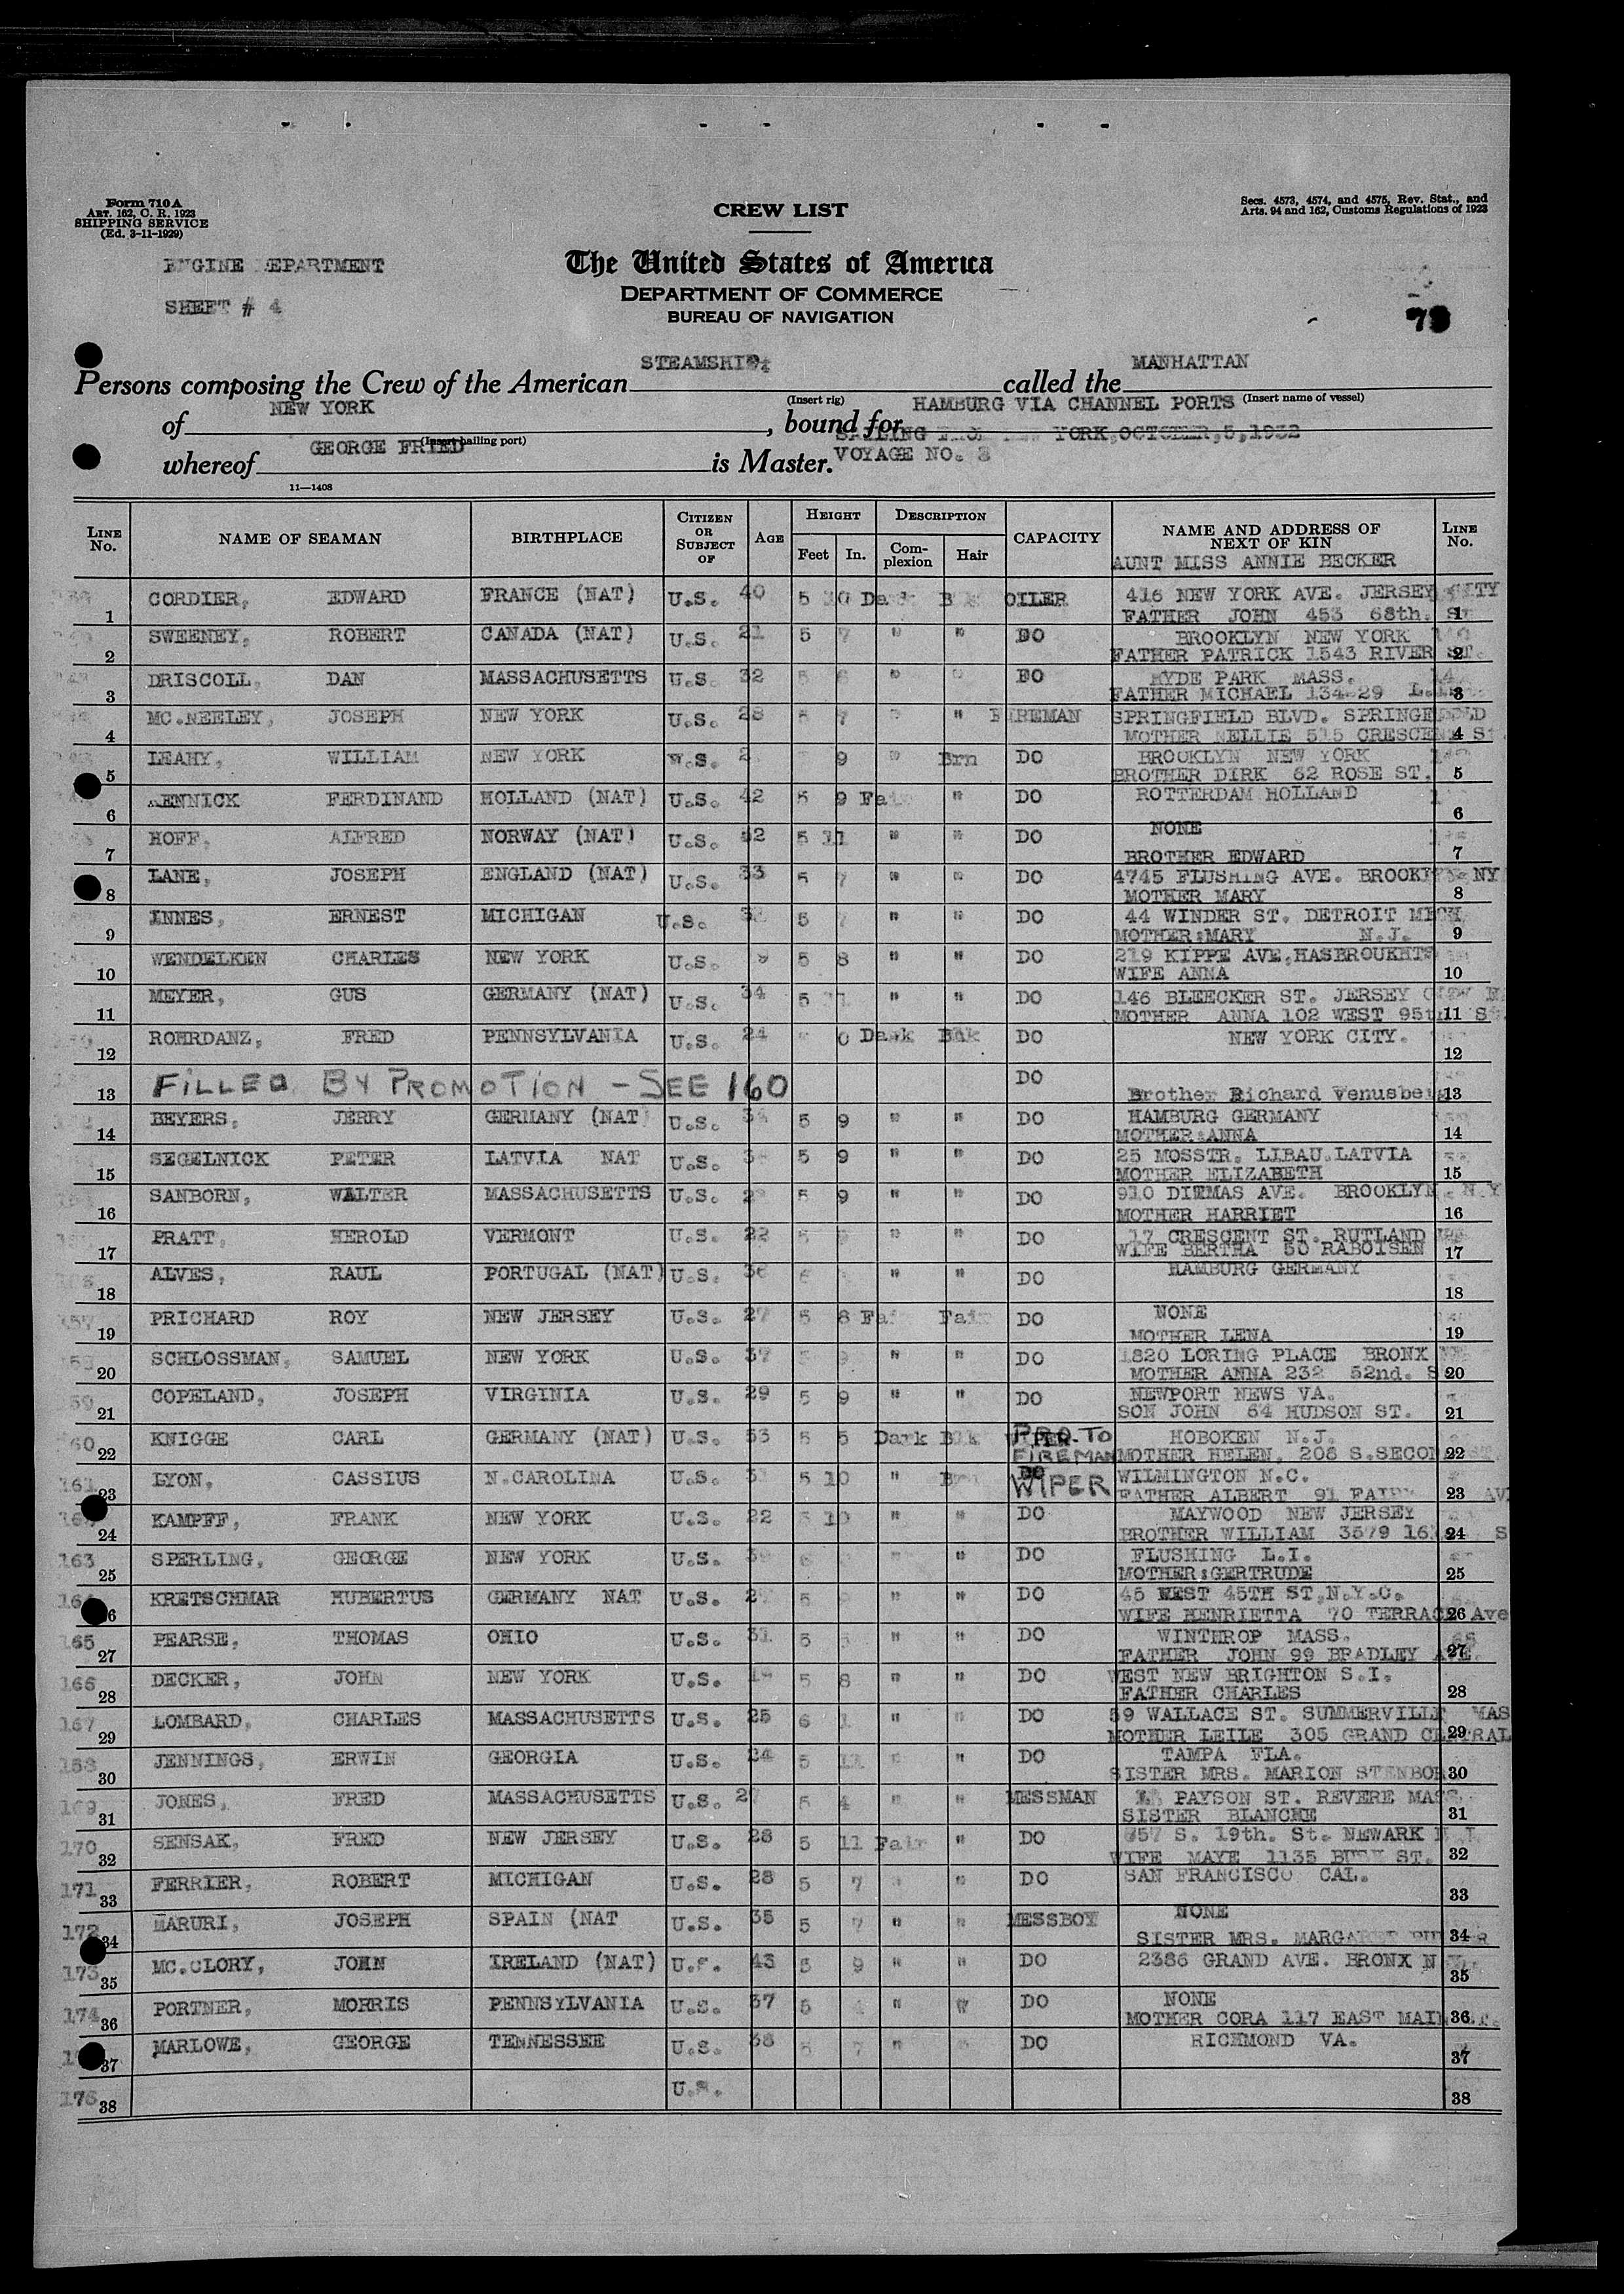 Form 710 A
ART. 162, C. R. 1923
SHIPPING SERVICE
(Ed. 3-11-1929)
CREW LIST
Secs. 4573, 4574, and 4575, Rev. Stat., and
Arts. 94 and 162, Customs Regulations of 1923
ENGINE DEPARTMENT
The United States of America
DEPARTMENT OF COMMERCE
SHEET # 4
BUREAU OF NAVIGATION
Persons composing the Crew of the American STEAMSHIP called the MANHATTAN
(Insert rig) (Insert name of vessel)
of NEW YORK, bound for HAMBURG VIA CHANNEL PORTS
(Insert hailing port) SAILING FROM NEW YORK, OCTOBER, 5, 1932
whereof GEORGE FRIED is Master. VOYAGE NO.
11—1408
LINE No. NAME OF SEAMAN BIRTHPLACE CITIZEN OR SUBJECT OF AGE HEIGHT Feet In. DESCRIPTION Complexion Hair CAPACITY NAME AND ADDRESS OF NEXT OF KIN LINE No.
AUNT MISS ANNIE BECKER
1 CORDIER, EDWARD FRANCE (NAT) U.S. 40 5 10 Dark Blk OILER 416 NEW YORK AVE. JERSEY CITY 1
FATHER JOHN 453 68th. St
2 SWEENEY, ROBERT CANADA (NAT) U.S. 21 5 7 " " DO BROOKLYN NEW YORK 2
FATHER PATRICK 1543 RIVER ST.
3 DRISCOLL, DAN MASSACHUSETTS U.S. 32 5 " " DO HYDE PARK MASS. 3
FATHER MICHAEL 134-29
4 MC.NEELEY, JOSEPH NEW YORK U.S. 28 5 7 " " FIREMAN SPRINGFIELD BLVD. SPRINGFIELD 4
MOTHER NELLIE 515 CRESCENT St.
5 LEAHY, WILLIAM NEW YORK U.S. 9 " Brn DO BROOKLYN NEW YORK 5
BROTHER DIRK 62 ROSE ST.
6 FERDINAND HOLLAND (NAT) U.S. 42 5 9 Fair " DO ROTTERDAM HOLLAND 6
7 HOFF, ALFRED NORWAY (NAT) U.S. 5 11 " " DO NONE 7
BROTHER EDWARD
8 LANE, JOSEPH ENGLAND (NAT) U.S. 33 5 7 " " DO 4745 FLUSHING AVE. NY 8
MOTHER MARY
9 INNES, ERNEST MICHIGAN U.S. 5 7 " " DO 44 WINDER ST. DETROIT MICH 9
MOTHER:MARY N.J.
10 WENDELKEN CHARLES NEW YORK U.S. 5 8 " " DO 219 KIPPE AVE.HASBROUKHTS 10
WIFE ANNA
11 MEYER, GUS GERMANY (NAT) U.S. 34 5 " " DO 146 BLEECKER ST. JERSEY 11
MOTHER ANNA 102 WEST 95th
12 ROHRDANZ, FRED PENNSYLVANIA U.S. 24 Dark Blk DO NEW YORK CITY. 12
13 FILLED BY PROMOTION - SEE 160 DO 13
Brother Richard Venusberg
14 BEYERS, JERRY GERMANY (NAT U.S. 5 9 " " DO HAMBURG GERMANY 14
MOTHER:ANNA
15 SEGELNICK PETER LATVIA NAT U.S. 5 9 " " DO 25 MOSSTR. LIBAU.LATVIA 15
MOTHER ELIZABETH
16 SANBORN, WALTER MASSACHUSETTS U.S. 5 9 " " DO 910 DITMAS AVE. BROOKLYN N.Y 16
MOTHER HARRIET
17 PRATT, HEROLD VERMONT U.S. 22 5 " " DO 17 CRESCENT ST. RUTLAND 17
WIFE BERTHA 50 RABOISEN
18 ALVES, RAUL PORTUGAL (NAT) U.S. 36 " " DO HAMBURG GERMANY 18
19 PRICHARD ROY NEW JERSEY U.S. 27 5 8 Fair Fair DO NONE 19
MOTHER LENA
20 SCHLOSSMAN, SAMUEL NEW YORK U.S. 37 5 9 " " DO 1820 LORING PLACE BRONX 20
MOTHER ANNA 232 52nd.
21 COPELAND, JOSEPH VIRGINIA U.S. 29 5 9 " " DO NEWPORT NEWS VA. 21
SON JOHN 64 HUDSON ST.
160 22 KNIGGE CARL GERMANY (NAT) U.S. 53 5 5 Dark Blk WIPER PRO. TO FIREMAN HOBOKEN N.J. 22
MOTHER HELEN, 208 S.SECOND ST
161 23 LYON, CASSIUS N.CAROLINA U.S. 5 10 " Brn DO WIPER WILMINGTON N.C. 23
FATHER ALBERT 91
24 KAMPFF, FRANK NEW YORK U.S. 22 5 10 " " DO MAYWOOD NEW JERSEY 24
BROTHER WILLIAM 3579
163 25 SPERLING, GEORGE NEW YORK U.S. " DO FLUSHING L.I. 25
MOTHER:GERTRUDE
KRETSCHMAR HUBERTUS GERMANY NAT U.S. 5 " " DO 45 WEST 45TH ST.N.Y.C. 26
WIFE HENRIETTA 70 TERRACE Ave
165 27 PEARSE, THOMAS OHIO U.S. 31 5 " " DO WINTHROP MASS. 27
FATHER JOHN 99 BRADLEY AVE.
166 28 DECKER, JOHN NEW YORK U.S. 5 8 " " DO WEST NEW BRIGHTON S.I. 28
FATHER CHARLES
167 29 LOMBARD, CHARLES MASSACHUSETTS U.S. 25 6 1 " " DO 59 WALLACE ST. SUMMERVILLE MAS 29
MOTHER LEILE 305 GRAND CENTRAL
168 30 JENNINGS, ERWIN GEORGIA U.S. 24 5 11 " " DO TAMPA FLA. 30
SISTER MRS. MARION STENBOR
169 31 JONES, FRED MASSACHUSETTS U.S. 27 5 4 " " MESSMAN PAYSON ST. REVERE MASS. 31
SISTER BLANCHE
170 32 SENSAK, FRED NEW JERSEY U.S. 28 5 11 Fair " DO 857 S. 19th. St. NEWARK N.J. 32
WIFE MAYE 1135 ST.
171 33 FERRIER, ROBERT MICHIGAN U.S. 28 5 7 " " DO SAN FRANCISCO CAL. 33
172 34 MARURI, JOSEPH SPAIN (NAT U.S. 35 5 7 " " MESSBOY NONE 34
SISTER MRS. MARGARET
173 35 MC.CLORY, JOHN IRELAND (NAT) U.S. 43 5 9 " " DO 2386 GRAND AVE. BRONX N.Y. 35
174 36 PORTNER, MORRIS PENNSYLVANIA U.S. 37 5 4 " " DO NONE 36
MOTHER CORA 117 EAST MAIN ST.
37 MARLOWE, GEORGE TENNESSEE U.S. 38 5 7 " " DO RICHMOND VA. 37
176 38 U.S. 38